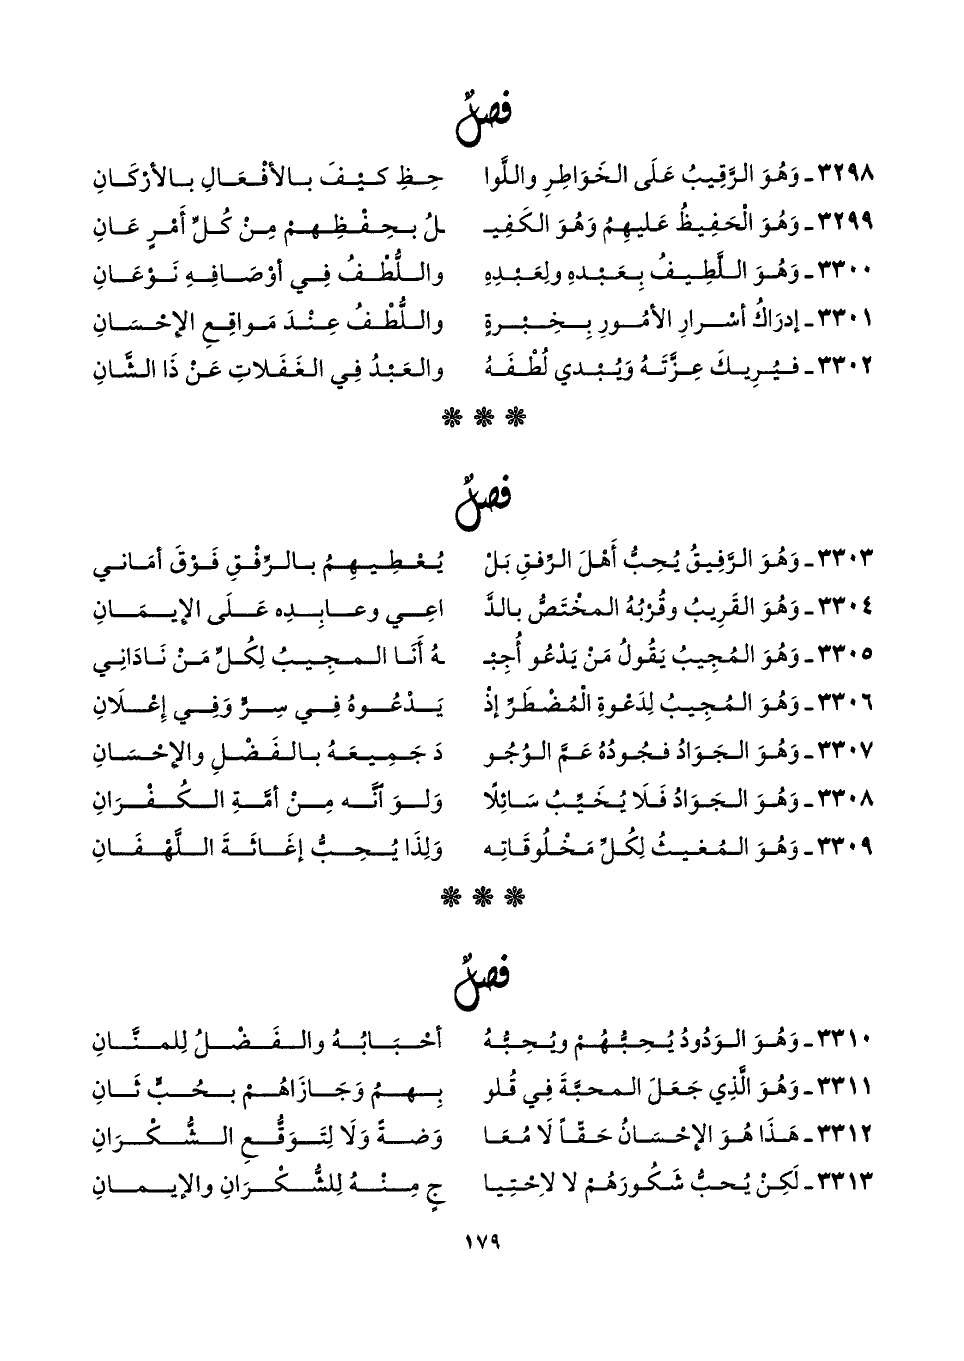 فصلٌ
٣٢٩٨ـ وَهُوَ الرَّقِيبُ عَلَى الخَوَاطِرِ واللَّوا حِظِ كَيْفَ بالأفْعَالِ بالأرْكَانِ
٣٢٩٩ـ وَهُوَ الْحَفِيظُ عَليهِمُ وَهُوَ الكَفِيـ ـلُ بحِفْظِهِمْ مِنْ كُلِّ أَمْرٍ عَانِ
٣٣٠٠ـ وَهُوَ اللَّطِيفُ بِعَبْدهِ ولِعَبْدِهِ واللُّطْفُ فِي أوْصَافِهِ نَوْعَانِ
٣٣٠١ـ إدرَاكُ أسْرارِ الأمُورِ بِخِبْرةٍ واللُّطْفُ عِنْدَ مَواقِعِ الإحْسَانِ
٣٣٠٢ـ فيُرِيكَ عِزَّتَهُ وَيُبْدي لُطْفَهُ والعَبْدُ فِي الغَفَلاتِ عَنْ ذَا الشَّانِ
❁ ❁ ❁
فصلٌ
٣٣٠٣ـ وَهُوَ الرَّفِيقُ يُحِبُّ أَهْلَ الرِّفقِ بَلْ يُعْطِيهِمُ بالرِّفْقِ فَوْقَ أمَانِي
٣٣٠٤ـ وَهُوَ القَرِيبُ وقُرْبُهُ المخْتَصُّ بالدَّ اعِي وعابِده عَلَى الإيمَانِ
٣٣٠٥ـ وَهُوَ المُجِيبُ يَقُولُ مَنْ يَدْعُو أُجِبْـ ـهُ أَنَا المجِيبُ لِكُلِّ مَنْ نَادَانِي
٣٣٠٦ـ وَهُوَ المُجِيبُ لِدَعْوةِ الْمُضْطَرِّ إذْ يَدْعُوهُ فِي سِرٍّ وَفِي إعْلَانِ
٣٣٠٧ـ وَهُوَ الجَوَادُ فجُودُهُ عَمَّ الوُجُو دَ جَمِيعَهُ بالفَضْلِ والإحْسَانِ
٣٣٠٨ـ وَهُوَ الجَوَادُ فَلَا يُخَيِّبُ سَائِلًا وَلو أنَّه مِنْ أمَّةِ الكُفْرَانِ
٣٣٠٩ـ وَهُوَ المُغيثُ لِكُلِّ مَخْلُوقَاتِه وَلِذَا يُحِبُّ إغَاثَةَ اللَّهْفَانِ
❁ ❁ ❁
فصلٌ
٣٣١٠ـ وَهُوَ الوَدُودُ يُحِبُّهُمْ ويُحِبُّهُ أحْبَابُهُ والفَضْلُ لِلمنَّانِ
٣٣١١ـ وَهُوَ الَّذِي جَعَلَ المحبَّةَ فِي قُلو بِهِمُ وَجَازَاهُمْ بحُبٍّ ثَانِ
٣٣١٢ـ هَذَا هُوَ الإحْسَانُ حَقّاً لَا مُعَا وَضةً وَلَا لِتَوَقُّعِ الشُّكْرَانِ
٣٣١٣ـ لَكِنْ يُحبُّ شَكُورَهُمْ لا لاحْتِيا جٍ مِنْهُ لِلشُّكْرَانِ والإيمانِ
١٧٩